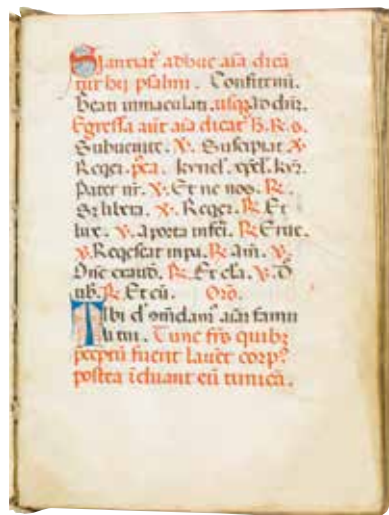 Si anxiat' adhuc aīa dicā
tur hij psalmi. Confitemī.
Beati inmaculati. usqȝ ad dn̄z.
Egressa aūt aīa dicat' h. R. s.
Subuenite. V. Suscipiat. V.
Requiē. p̄ca. kyriel'. xp̄el'. kyr̄.
Pater nr̄. V. Et ne nos. R.
Sȝ libera. V. Requiē. R. Et
lux. V. A porta infeī. R. Erue.
V. Reqescat in pa. R. Am̄. V.
Dn̄e exaud. R. Et cla. V. D
ub. R. Et cū. Orō.
Tibi d' om̄dam' aīaȝ famu
li tui. Tunc frēs quibȝ
p̄ceptū fuerit lauēt corp9
postea īduant eū tunicā.